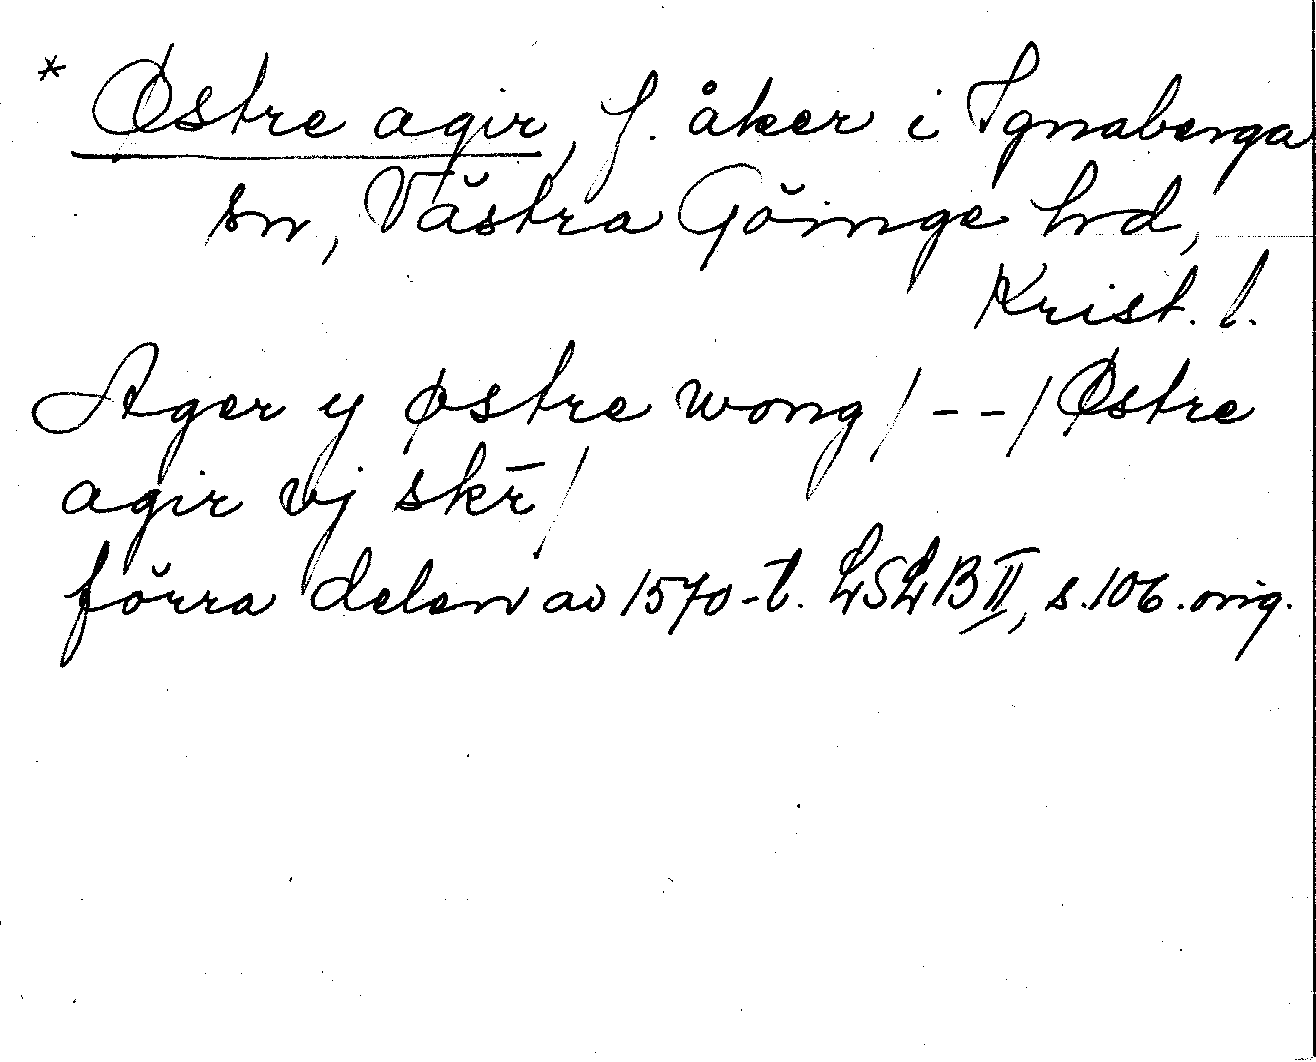 * Østre agir, f. åker i Ignaberga
sn, Västra Göinge hd,
Krist. l.
Ager y østre wong / - - / Østre
agir vj skr̄ /
förra delen av 1570-t. LSLB II, s. 106. orig.